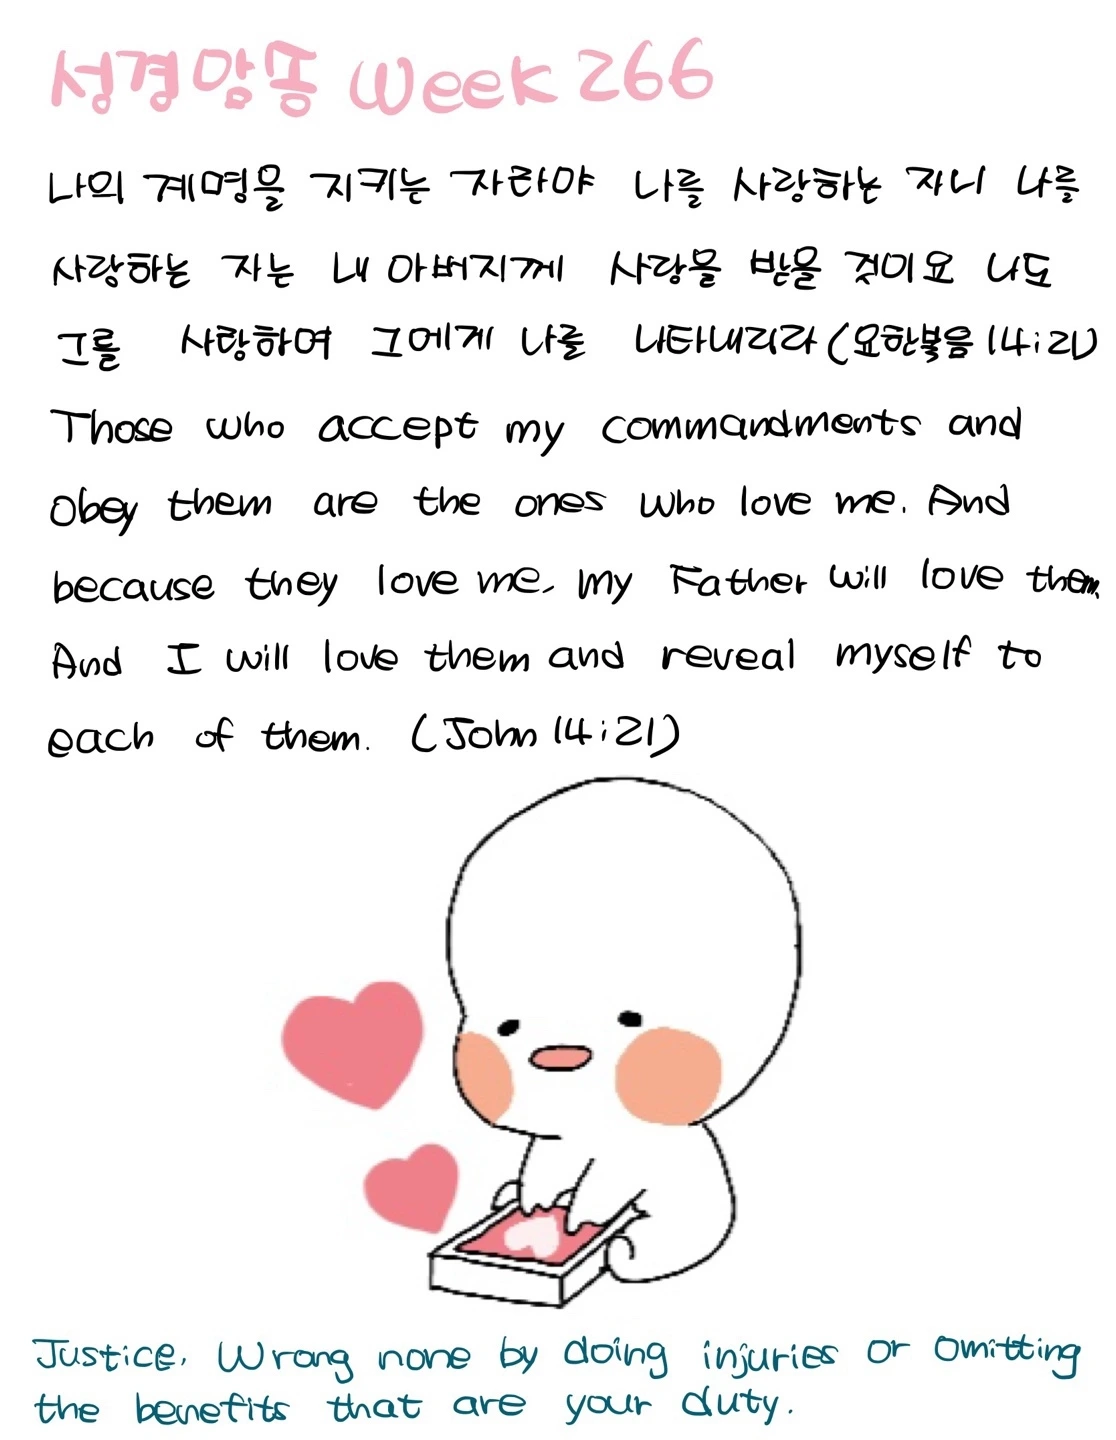 성경암송 Week 266
나의 계명을 지키는 자라야 나를 사랑하는 자니 나를
사랑하는 자는 내 아버지께 사랑을 받을 것이요 나도
그를 사랑하며 그에게 나를 나타내리라 (요한복음 14:21)
Those who accept my commandments and
obey them are the ones who love me. And
because they love me, my Father will love them.
And I will love them and reveal myself to
each of them. (John 14:21)
Justice. Wrong none by doing injuries or omitting
the benefits that are your duty.